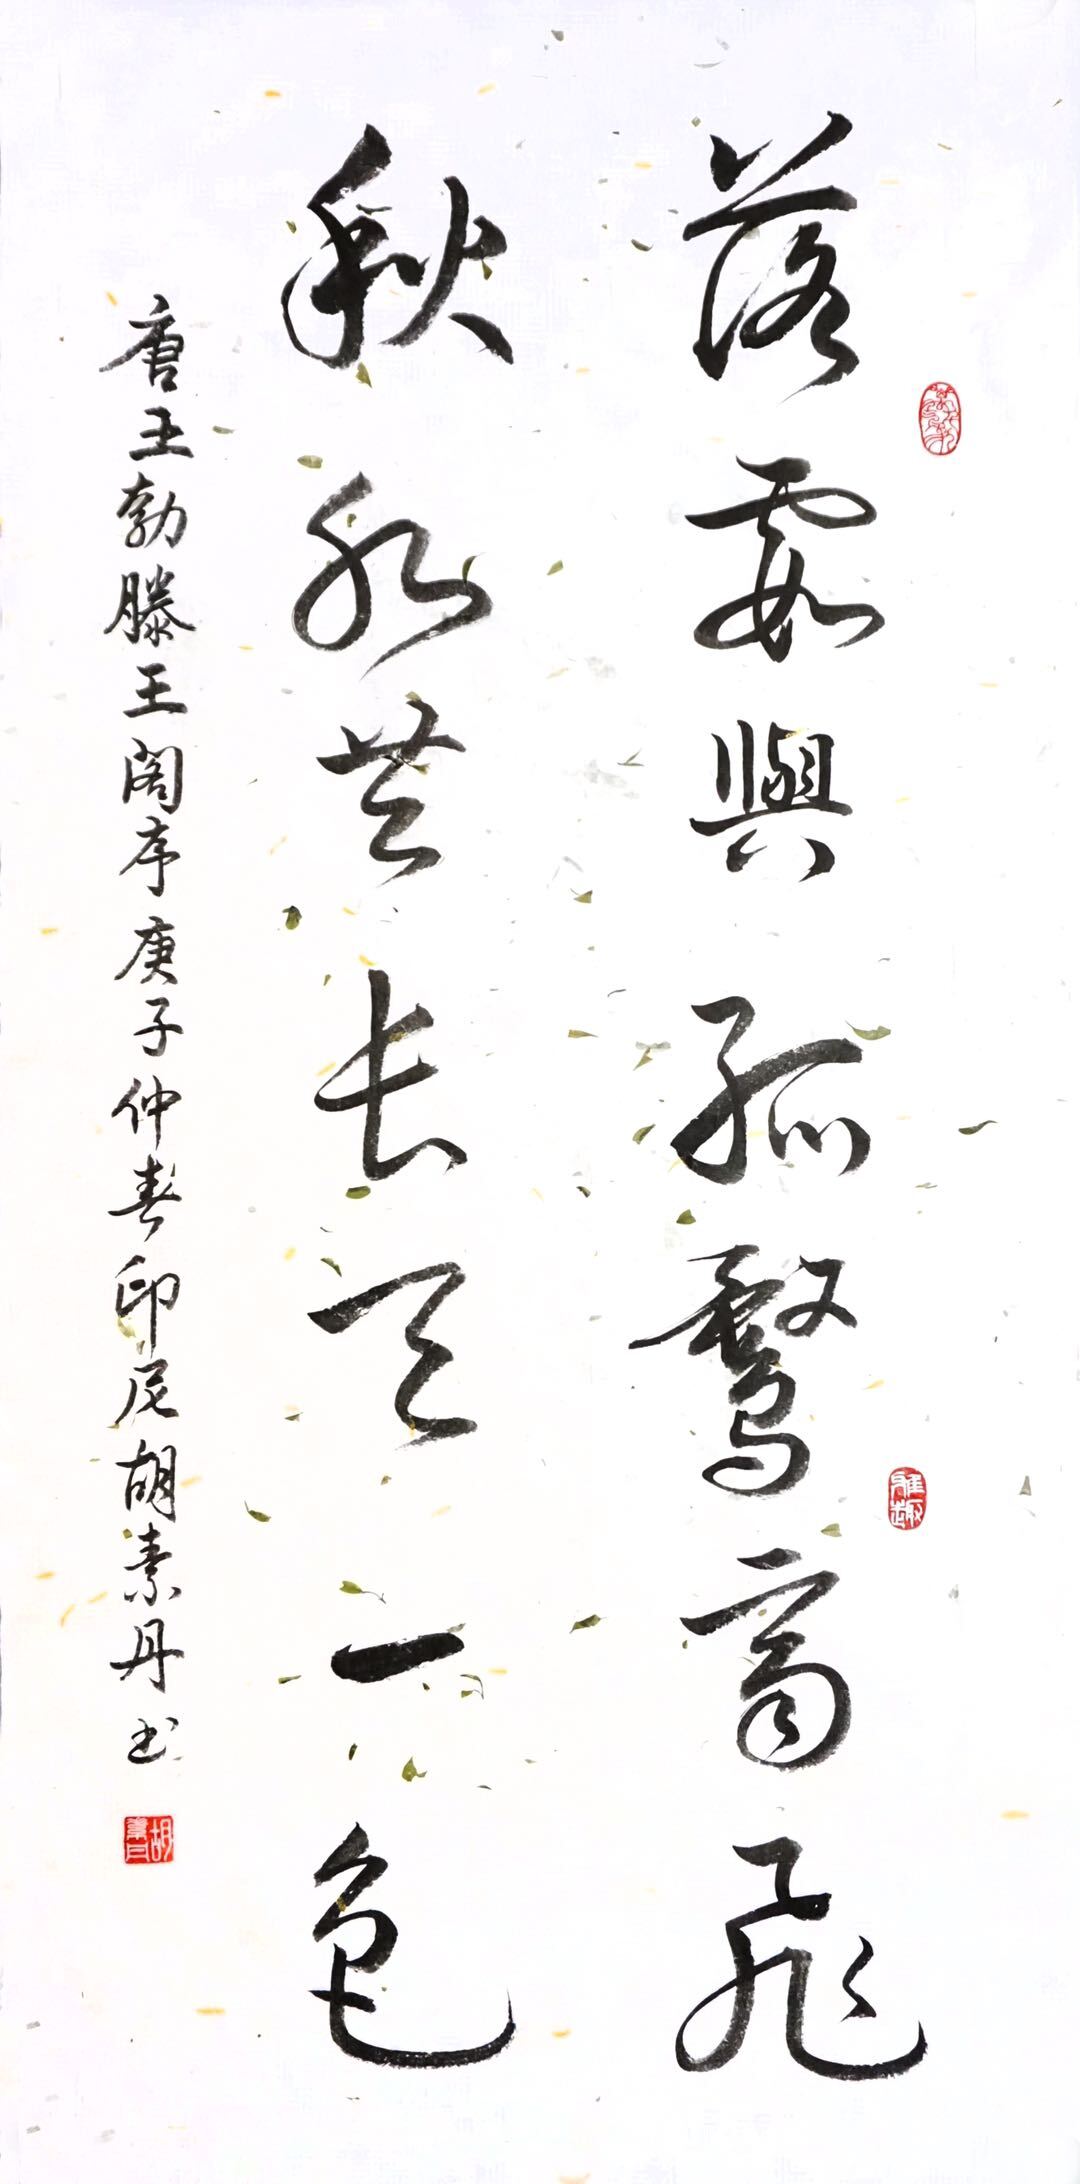 落霞與孤鶩齊飛
秋水共长天一色
唐王勃滕王阁序庚子仲春印尼胡素丹书
雅趣
胡素丹